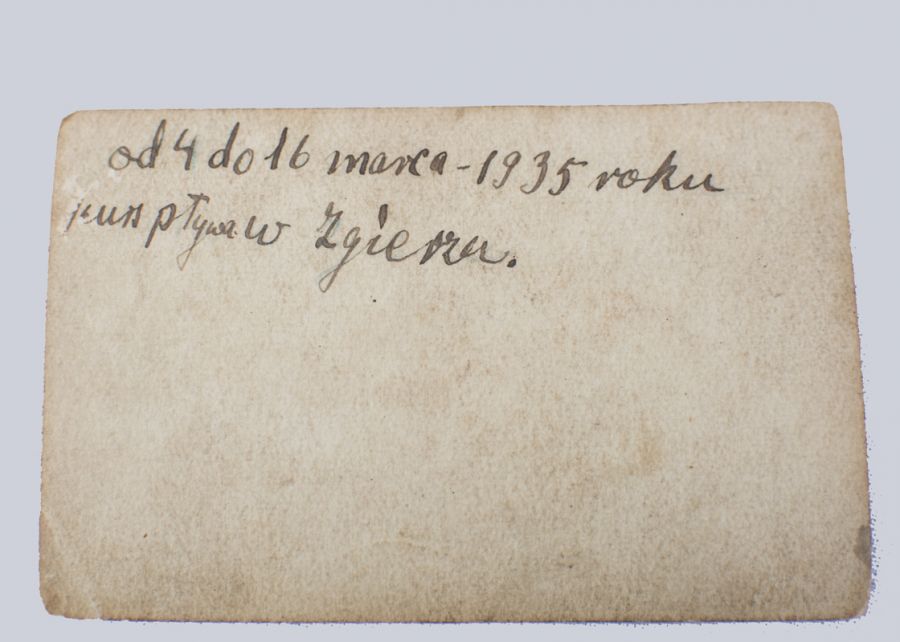 od 4 do 16 marca - 1935 roku
kurs pływa w Zgierzu.